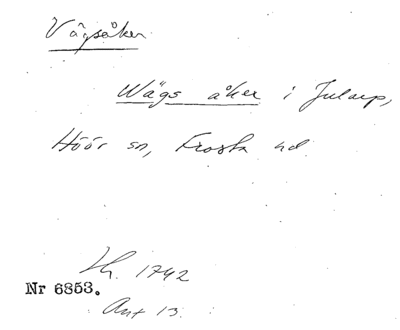 Vägsåker
Wägs åker i Jularp,
Höör sn, Frosta hd
Lh. 1742
Nr 6853.
Ant 13.